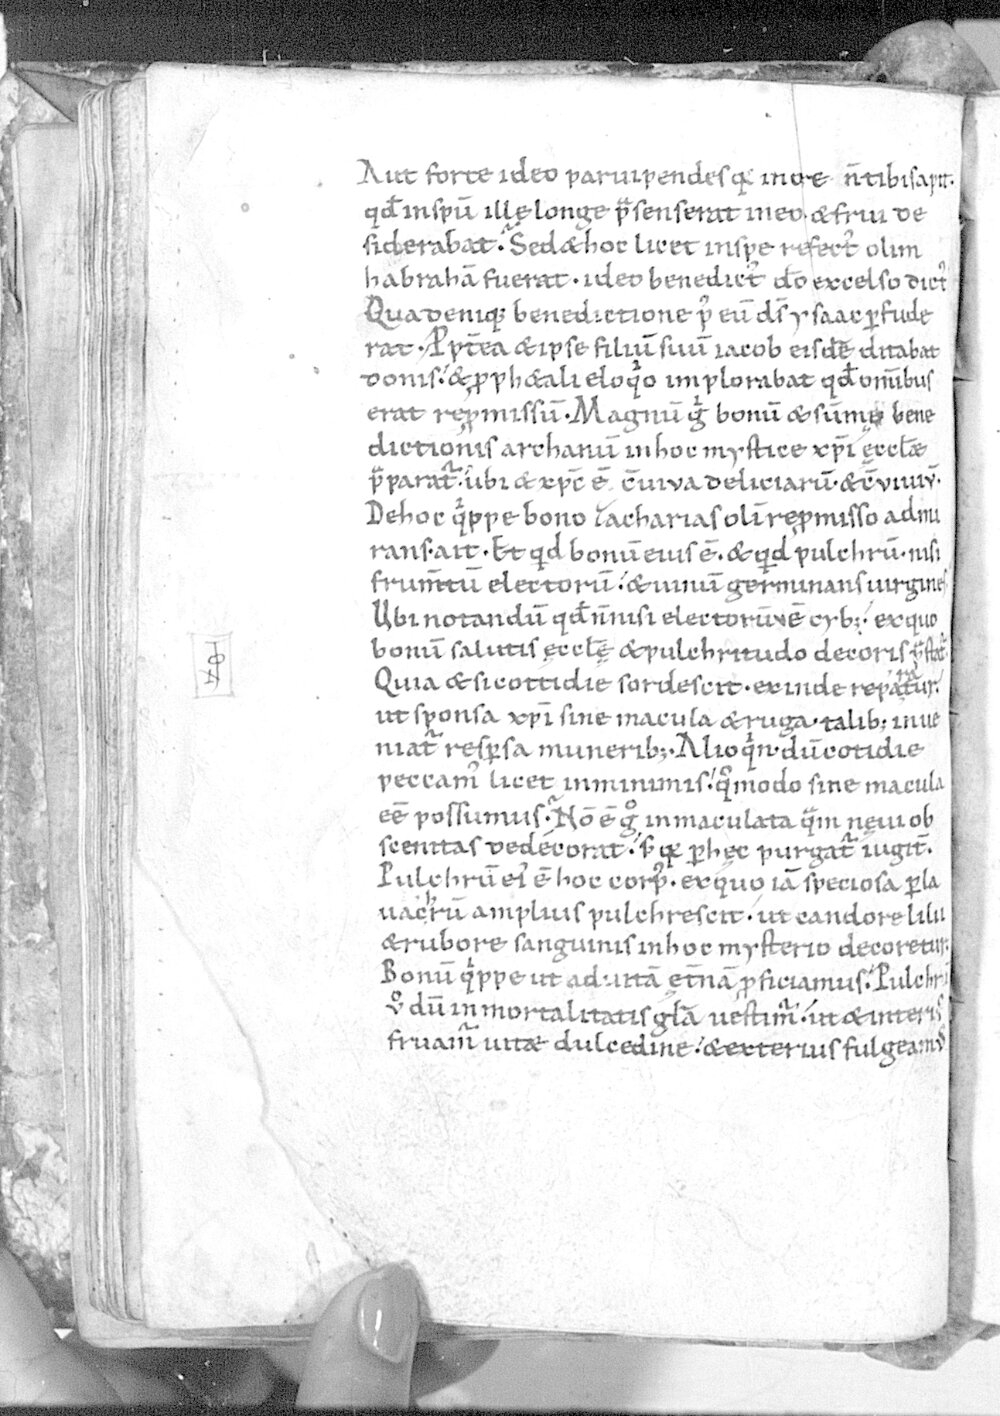 Aut forte ideo paruipendes q; in ore n̄ tibi sapit.
qđ in spū ille longe p̄senserat in eo. & frui de
siderabat. Sed & hoc licet in spe refect᾽ olim
habrahā fuerat. ideo benedict᾽ dō excelso dict᾽
Qua deniq; benedictione p᾽ eū dn̄s ysaac p̱fude
rat. P̱pt̄ea & ipse filiū suū iacob eisdē ditabat
donis. & p̱ph&ali eloq͛o implorabat qđ om̄ibus
erat rep̱missū. Magnū g͛ bonū & sūmę bene
dictionis archanū in hoc mystice xp̄i ęccłæ
p̄parat᷑. ubi & xp̄c ē c̄uiua deliciarū. & c̄uiuiū.
De hoc q͛ppe bono zacharias oli rep̱misso admi
rans. ait. Et q͛d bonū eius ē. & q͛d pulchrū. nisi
frum̄tū electorū. & uinū germinans uirgines
Ubi notandū qđ n̄ nisi electorū ē cyb;. ex quo
bonū salutis ęccłę & pulchritudo decoris p̄stat᷑.
Quia & si cottidie sordescit. exinde reparatur.
ut sponsa xp̄i sine macula & ruga. talib; inue
niat᷑ resp̱sa munerib;. Alioq͛n dū cotidie
peccam᾽ licet in minimis. q͛modo sine macula
eē possumus. Nō ē g° inmaculata q̄m nęui ob
scenitas dedecorat. s; q; p̱ hęc purgat᷑ iugit̄.
Pulchrū ei᾽ ē hoc corp᾽. ex quo iā speciosa p̱ la
uacrū amplius pulchrescit. ut candore lilii
& rubore sanguinis in hoc mysterio decoretur.
Bonū q͛ppe ut ad uitā et̄nā p̱ficiamus. Pulchrū
u° dū inmortalitatis głā uestim᷑. ut & interi᾽
fruam᷑ uitæ dulcedine. & exterius fulgeam᾽